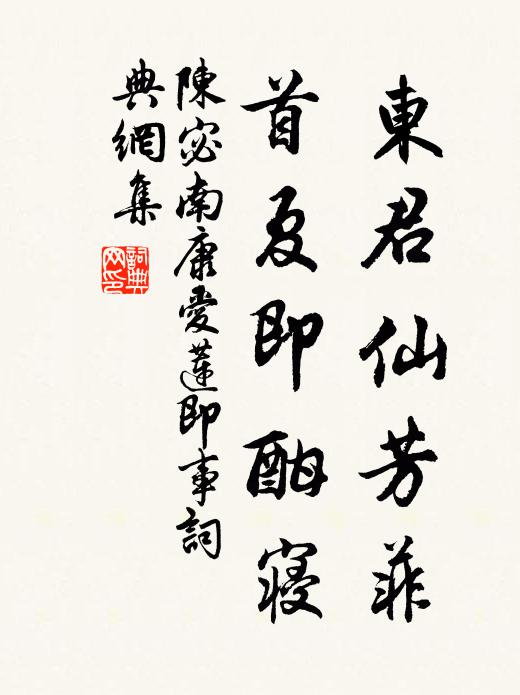 東君仙芳菲
首夏即酣寢
陳宓南康愛蓮即事詞
典網集
詞典
网印